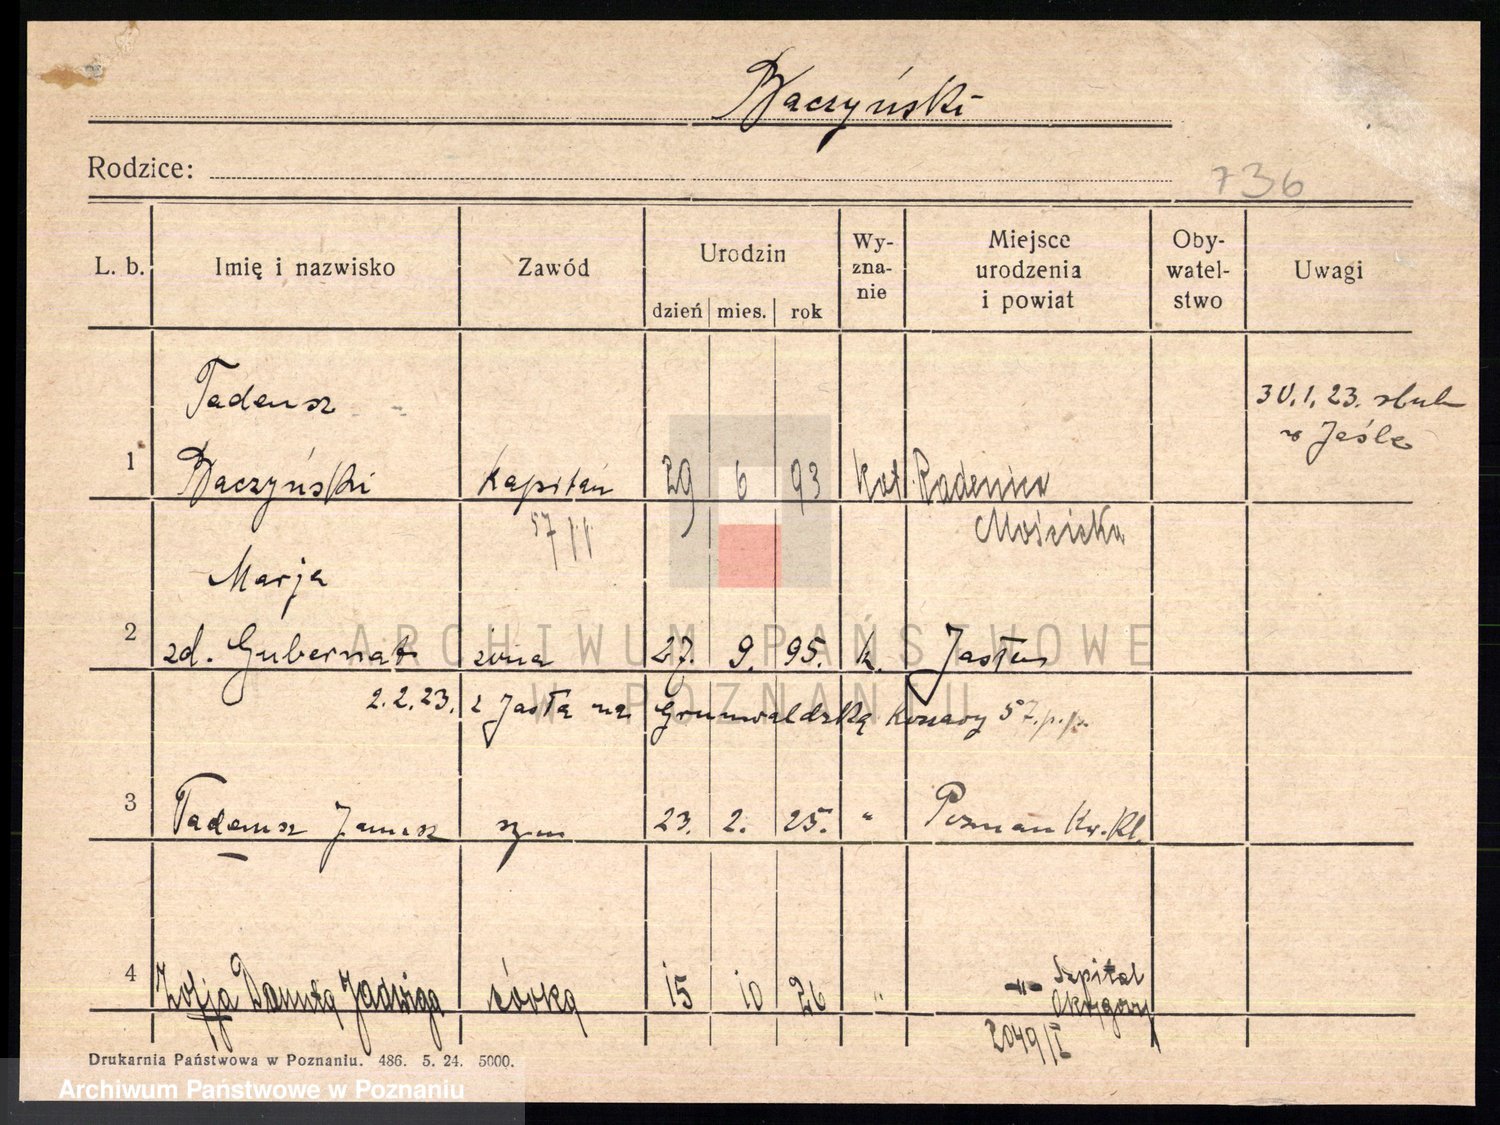 Baczyński
Rodzice:
736
L. b. Imię i nazwisko Zawód Urodzin dzień mies. rok Wy-zna-nie Miejsce urodzenia i powiat Oby-watel-stwo Uwagi
Tadeusz
30.1.23. ślub
w Jaśle
1 Baczyński kapitan 29 6 93 kat Radenice
57 p.p. Mościska
Marja
2 zd. Gubernat żona 27. 9. 95. k. Jasło
2.2.23. z Jasła na Grunwaldzką koszary 57.p.p.
3 Tadeusz Janusz syn 23. 2. 25. " Poznań Kw. Kl.
4 Zofja Danuta Jadwiga córka 15 10 26 " -"- Szpital
Okręgowy
2049/I
Drukarnia Państwowa w Poznaniu. 486. 5. 24. 5000.
ARCHIWUM PAŃSTWOWE
W POZNANIU
Archiwum Państwowe w Poznaniu